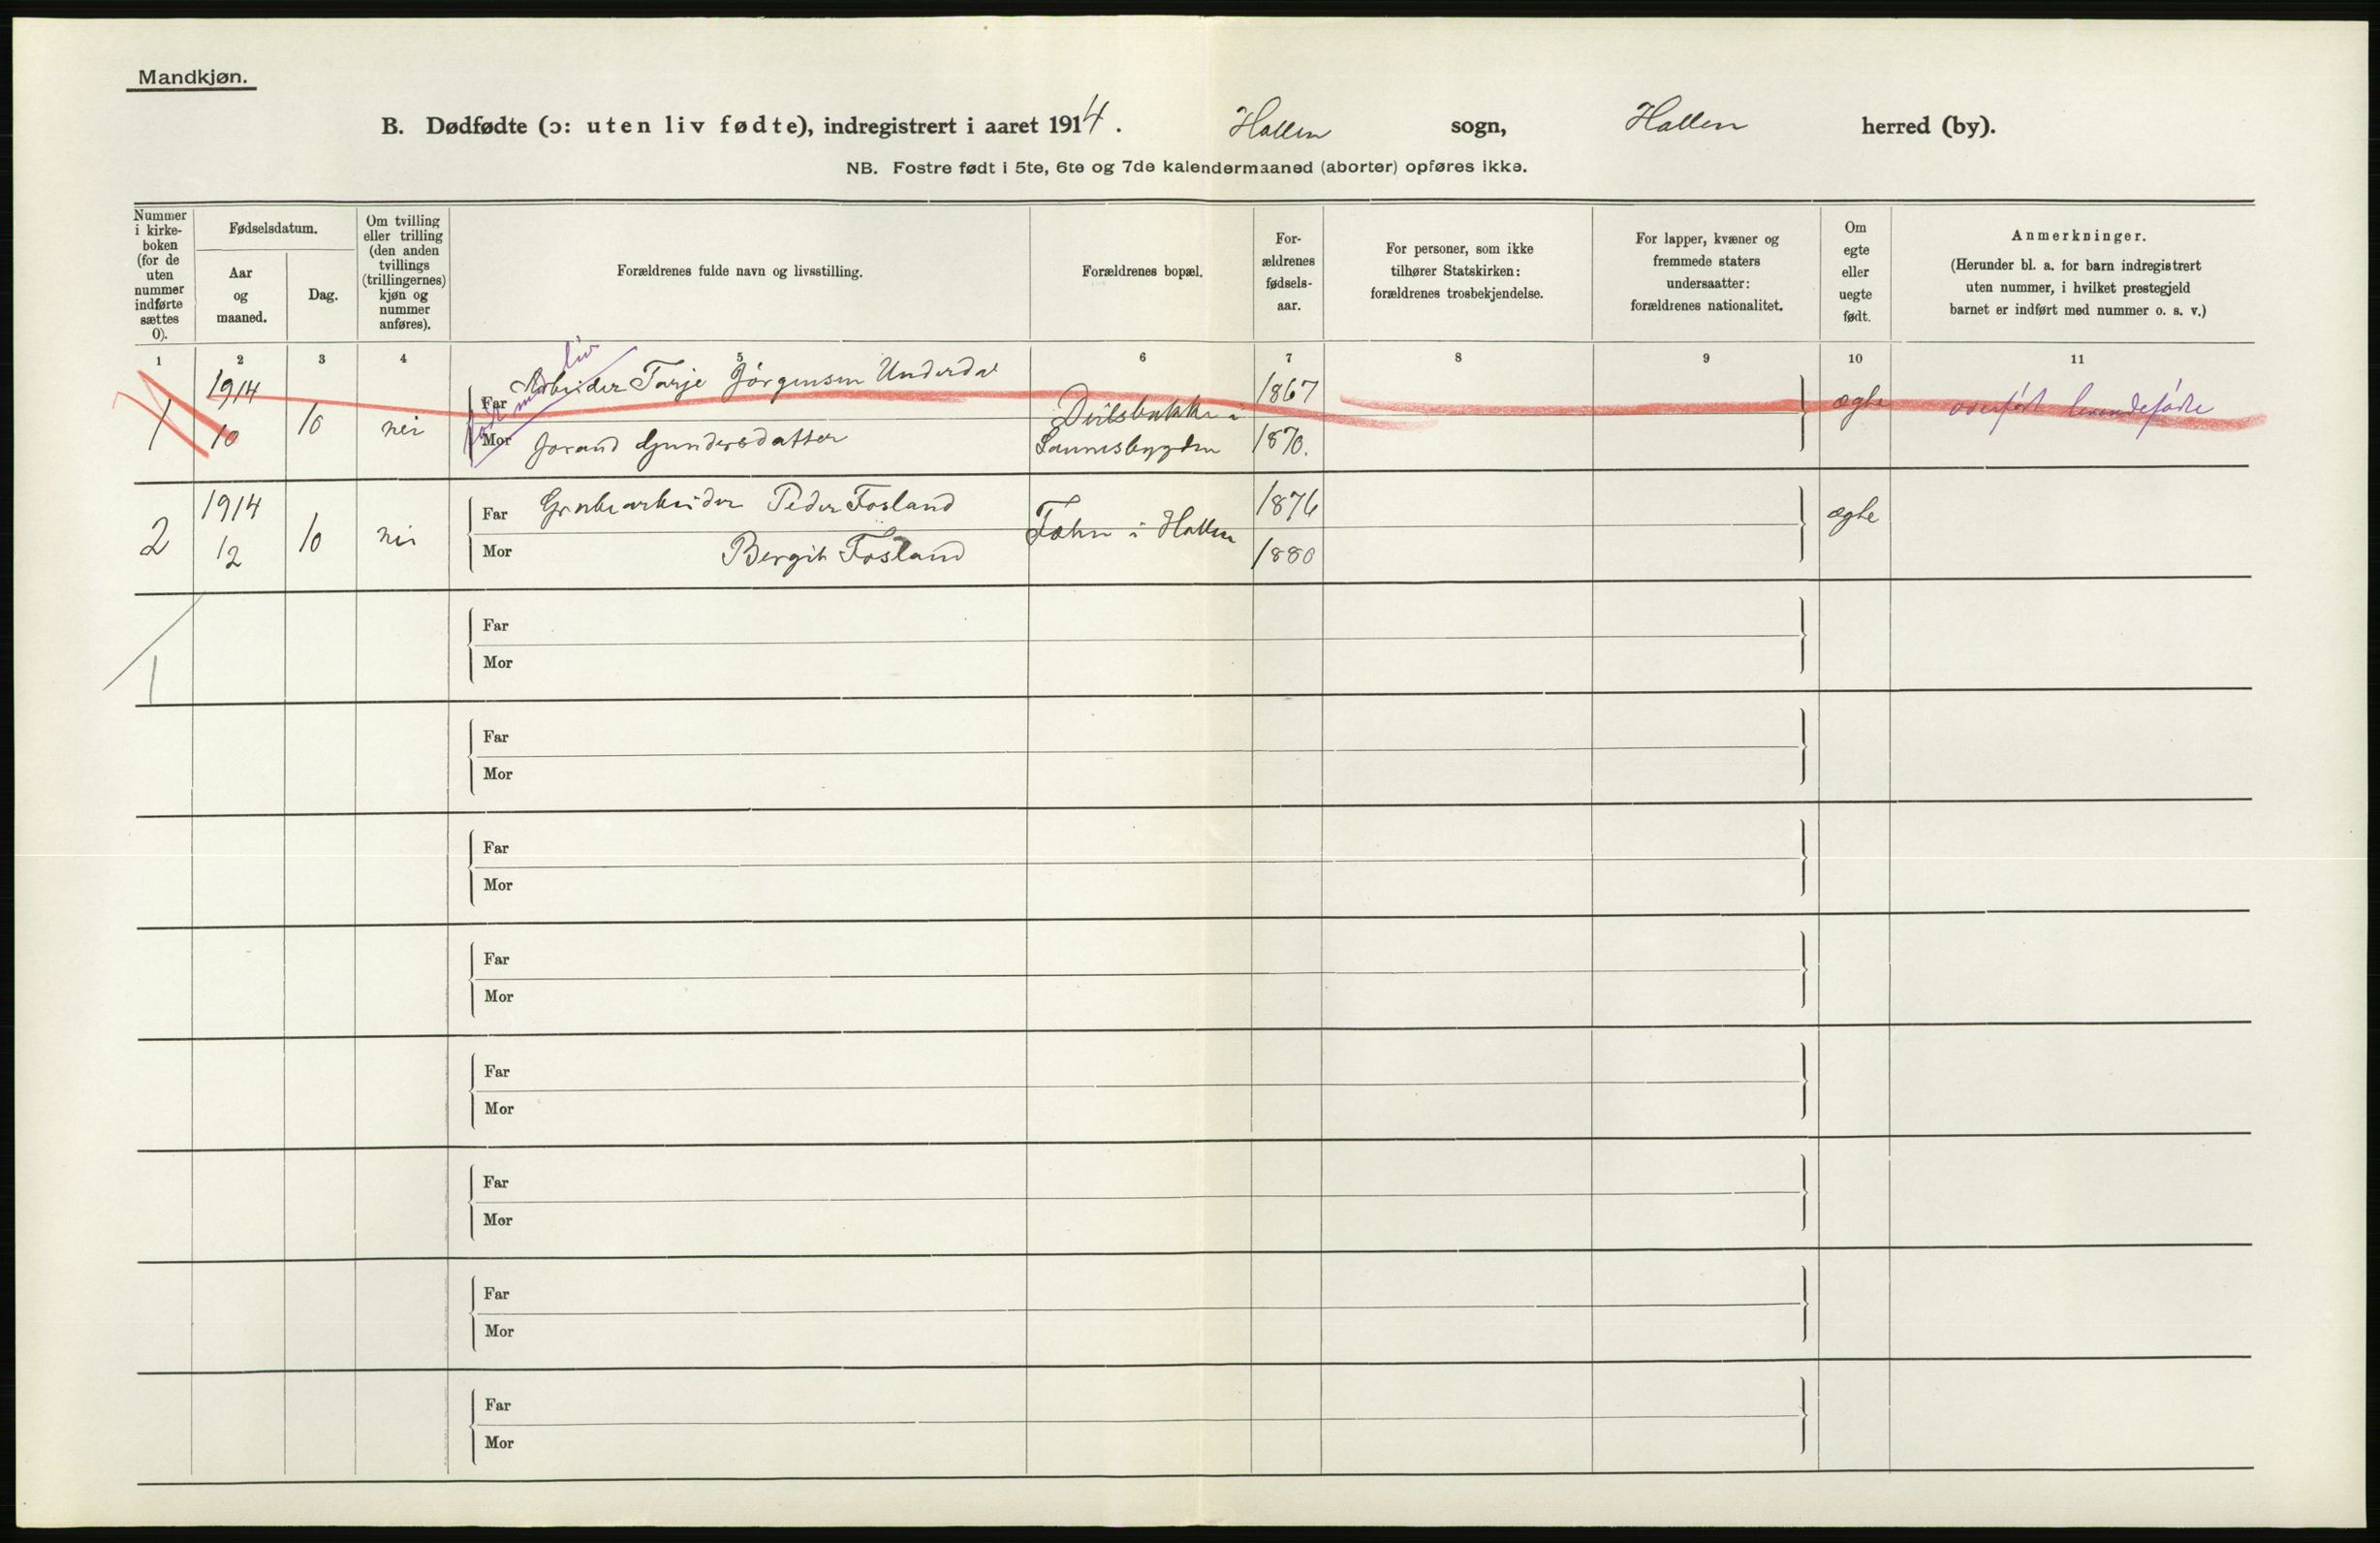 Mandkjøn.
B. Dødfødte (ɔ: uten liv fødte), indregistrert i aaret 1914. Hollen sogn, Hollen herred (by).
NB. Fostre født i 5te, 6te og 7de kalendermaaned (aborter) opføres ikke.
Nummer
i kirke-
boken
(for de
uten
nummer
indførte
sættes
0).
Fødselsdatum.
Aar
og
maaned.
Dag.
Om tvilling
eller trilling
(den anden
tvillings
(trillingernes)
kjøn og
nummer
anføres).
Forældrenes fulde navn og livsstilling.
Forældrenes bopæl.
For-
ældrenes
fødsels-
aar.
For personer, som ikke
tilhører Statskirken:
forældrenes trosbekjendelse.
For lapper, kvæner og
fremmede staters
undersaatter:
forældrenes nationalitet.
Om
egte
eller
uegte
født.
Anmerkninger.
(Herunder bl. a. for barn indregistrert
uten nummer, i hvilket prestegjeld
barnet er indført med nummer o. s. v.)
1 2 3 4 5 6 7 8 9 10 11
født med liv
1 1914 10 10 nei
Far Arbeider Tarje Jørgensen Underdal 1867
Mor Jorand Gundersdatter 1870.
i Sannesbygden
ægte overført levendefødte
2 1914 12 10 nei
Far Grubearbeider Peder Fosland 1876
Mor Bergit Fosland 1880
i Hollen
ægte
1
Far
Mor
Far
Mor
Far
Mor
Far
Mor
Far
Mor
Far
Mor
Far
Mor
Far
Mor